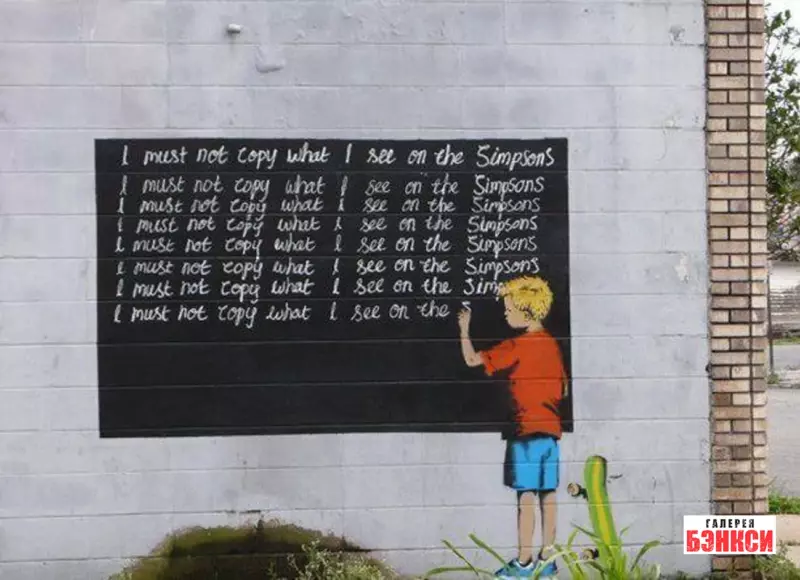 I must not copy what I see on the Simpsons
I must not copy what I see on the Simpsons
I must not copy what I see on the Simpsons
I must not copy what I see on the Simpsons
I must not copy what I see on the Simpsons
I must not copy what I see on the Simpsons
I must not copy what I see on the Simp
I must not copy what I see on the S
ГАЛЕРЕЯ
БЭНКСИ